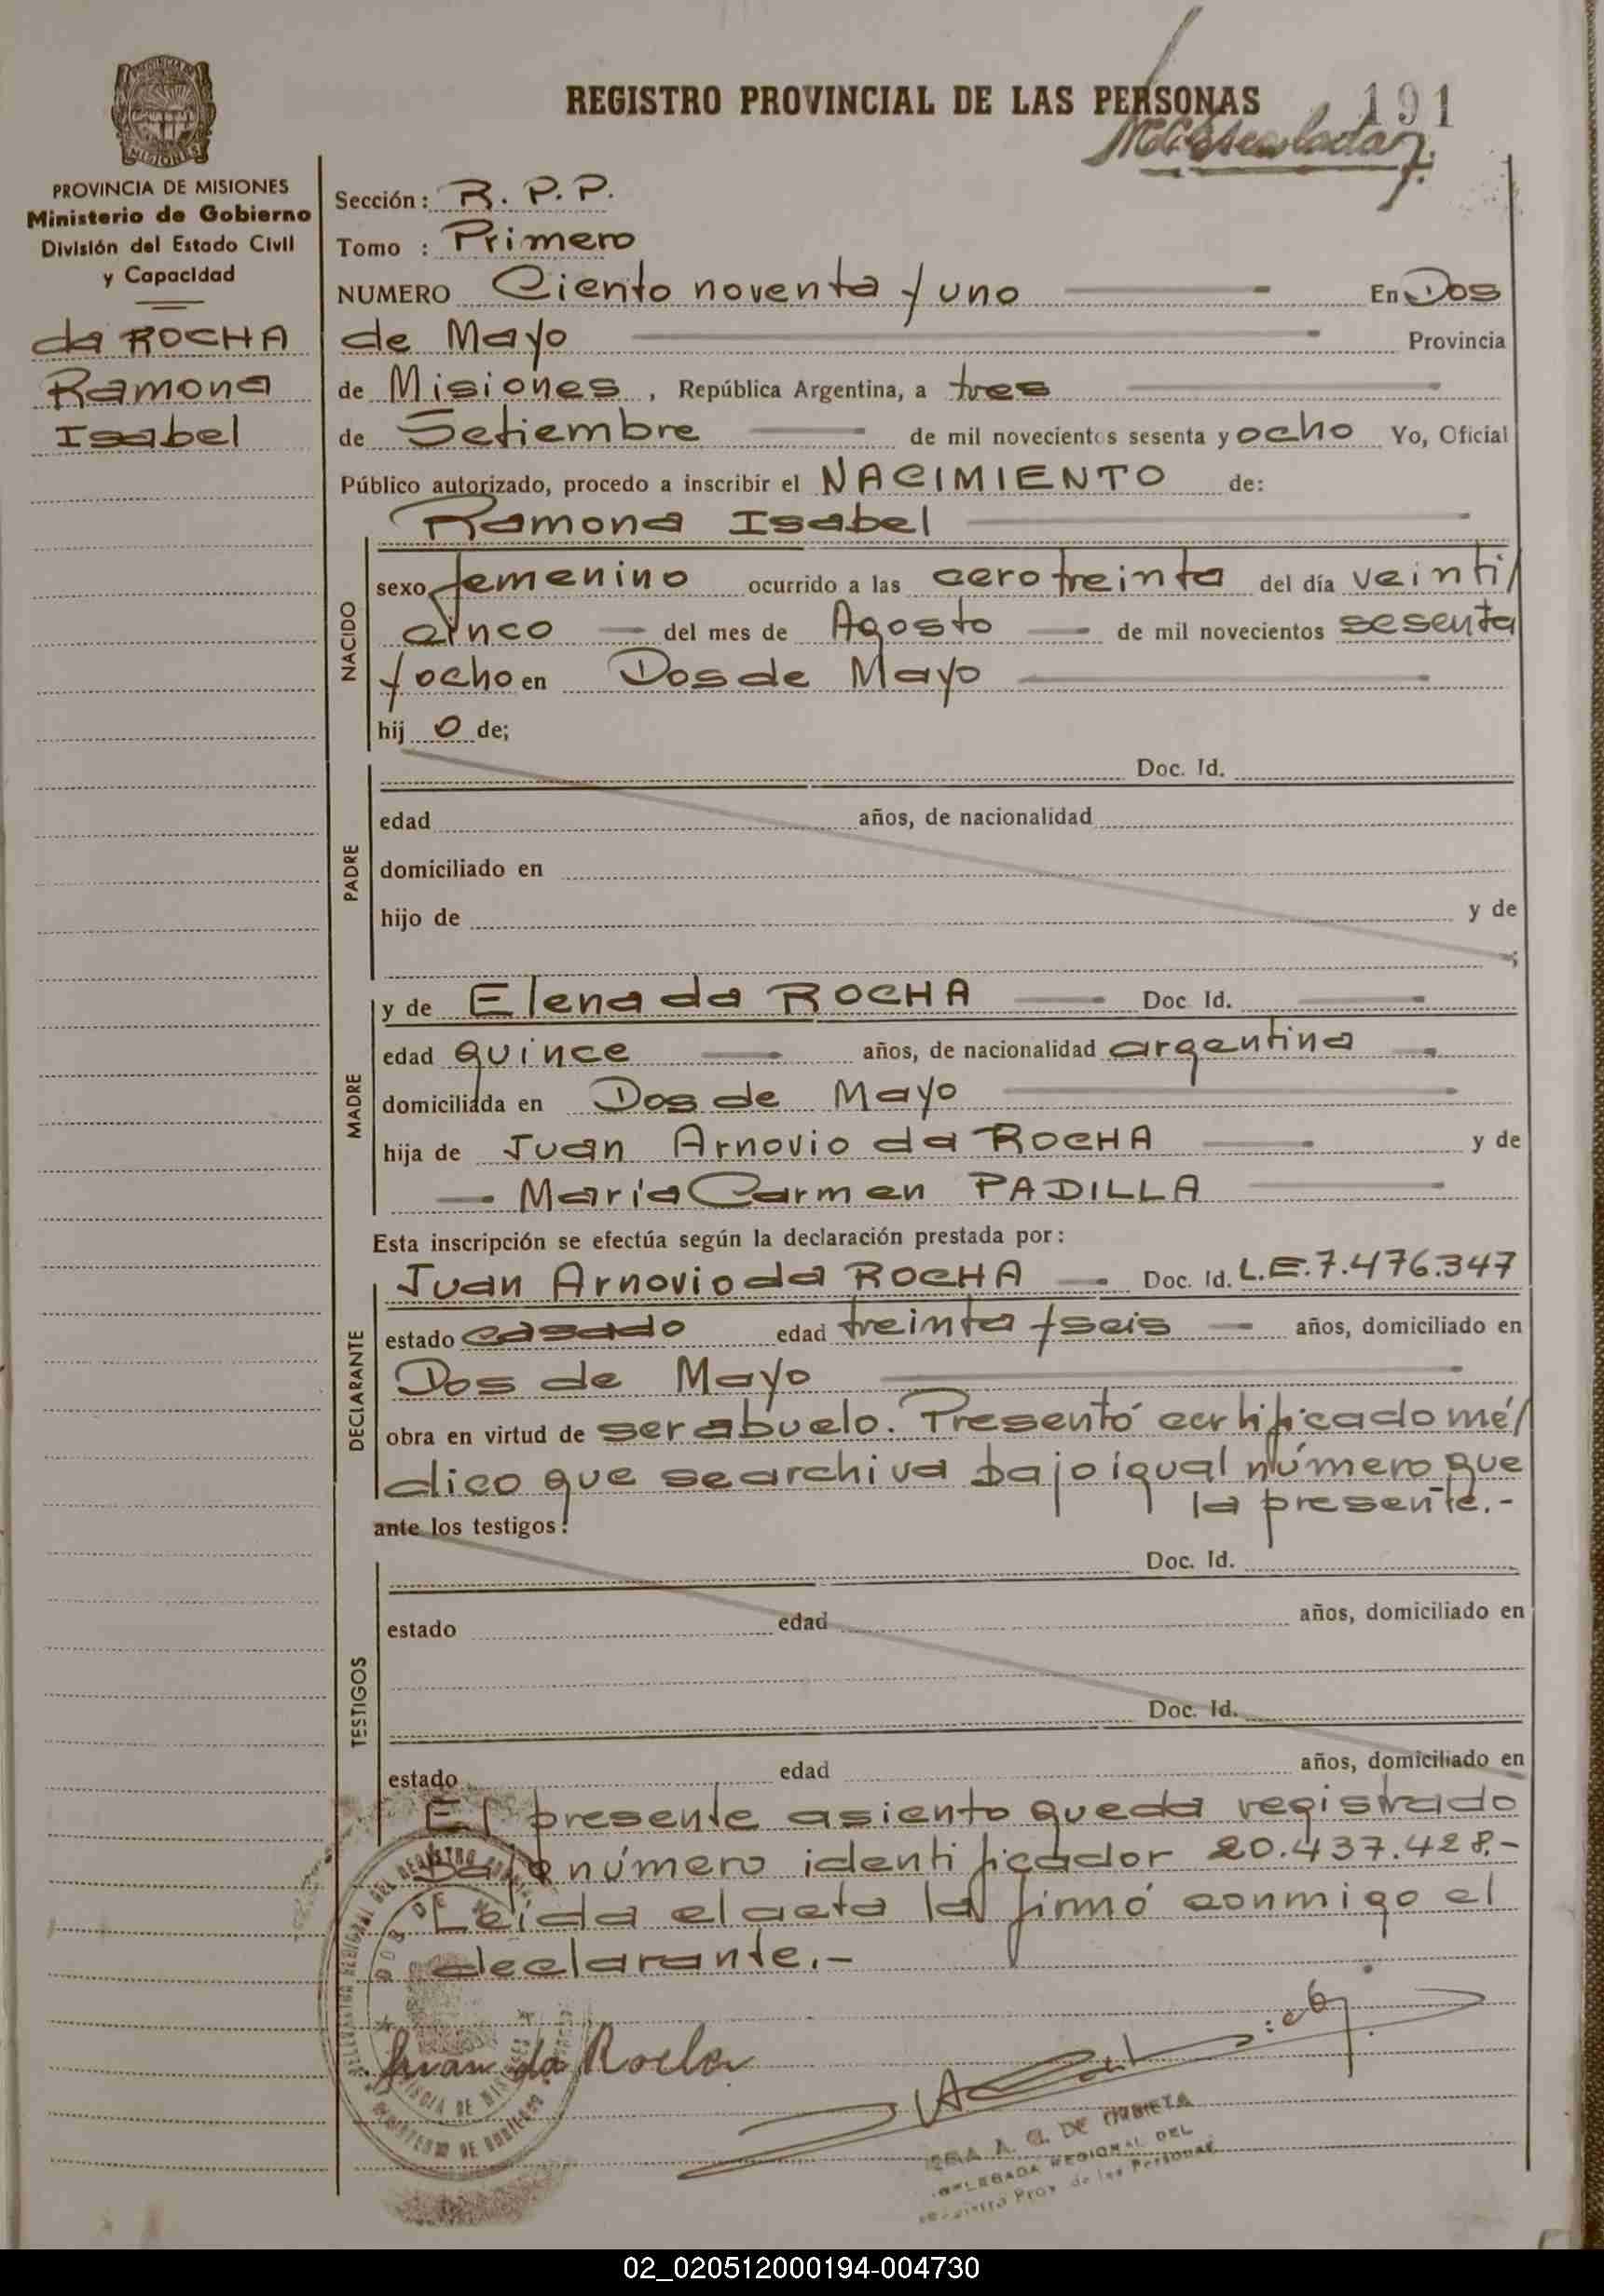 REGISTRO PROVINCIAL DE LAS PERSONAS
191
MISIONES
PROVINCIA DE MISIONES
Ministerio de Gobierno
División del Estado Civil
y Capacidad
da ROCHA
Ramona
Isabel
Sección: R. P. P.
Tomo : Primero
NUMERO Ciento noventa y uno En Dos
de Mayo Provincia
de Misiones, República Argentina, a tres
de Setiembre de mil novecientos sesenta y ocho Yo, Oficial
Público autorizado, procedo a inscribir el NACIMIENTO de:
Ramona Isabel
NACIDO
sexo femenino ocurrido a las cero treinta del día veinti/
cinco del mes de Agosto de mil novecientos sesenta
y ocho en Dos de Mayo
hij o de;
PADRE
Doc. Id.
edad años, de nacionalidad
domiciliado en
hijo de y de
;
MADRE
y de Elena da ROCHA Doc. Id.
edad quince años, de nacionalidad argentina
domiciliada en Dos de Mayo
hija de Juan Arnovio da ROCHA y de
María Carmen PADILLA
Esta inscripción se efectúa según la declaración prestada por:
DECLARANTE
Juan Arnovio da ROCHA Doc. Id. L.E. 7.476.347
estado casado edad treinta y seis años, domiciliado en
Dos de Mayo
obra en virtud de ser abuelo. Presentó certificado mé/
dico que se archiva bajo igual número que
la presente.-
ante los testigos:
TESTIGOS
Doc. Id.
estado edad años, domiciliado en
Doc. Id.
estado edad años, domiciliado en
El presente asiento queda registrado
bajo número identificador 20.437.428.-
Leída el acta la firmó conmigo el
declarante.-
Juan da Rocha
A. G. DE
DELEGADA REGIONAL DEL
Registro Prov. de las Personas
02_020512000194-004730